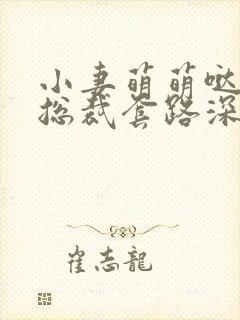 小妻萌萌哒
总裁套路深
崔志龍